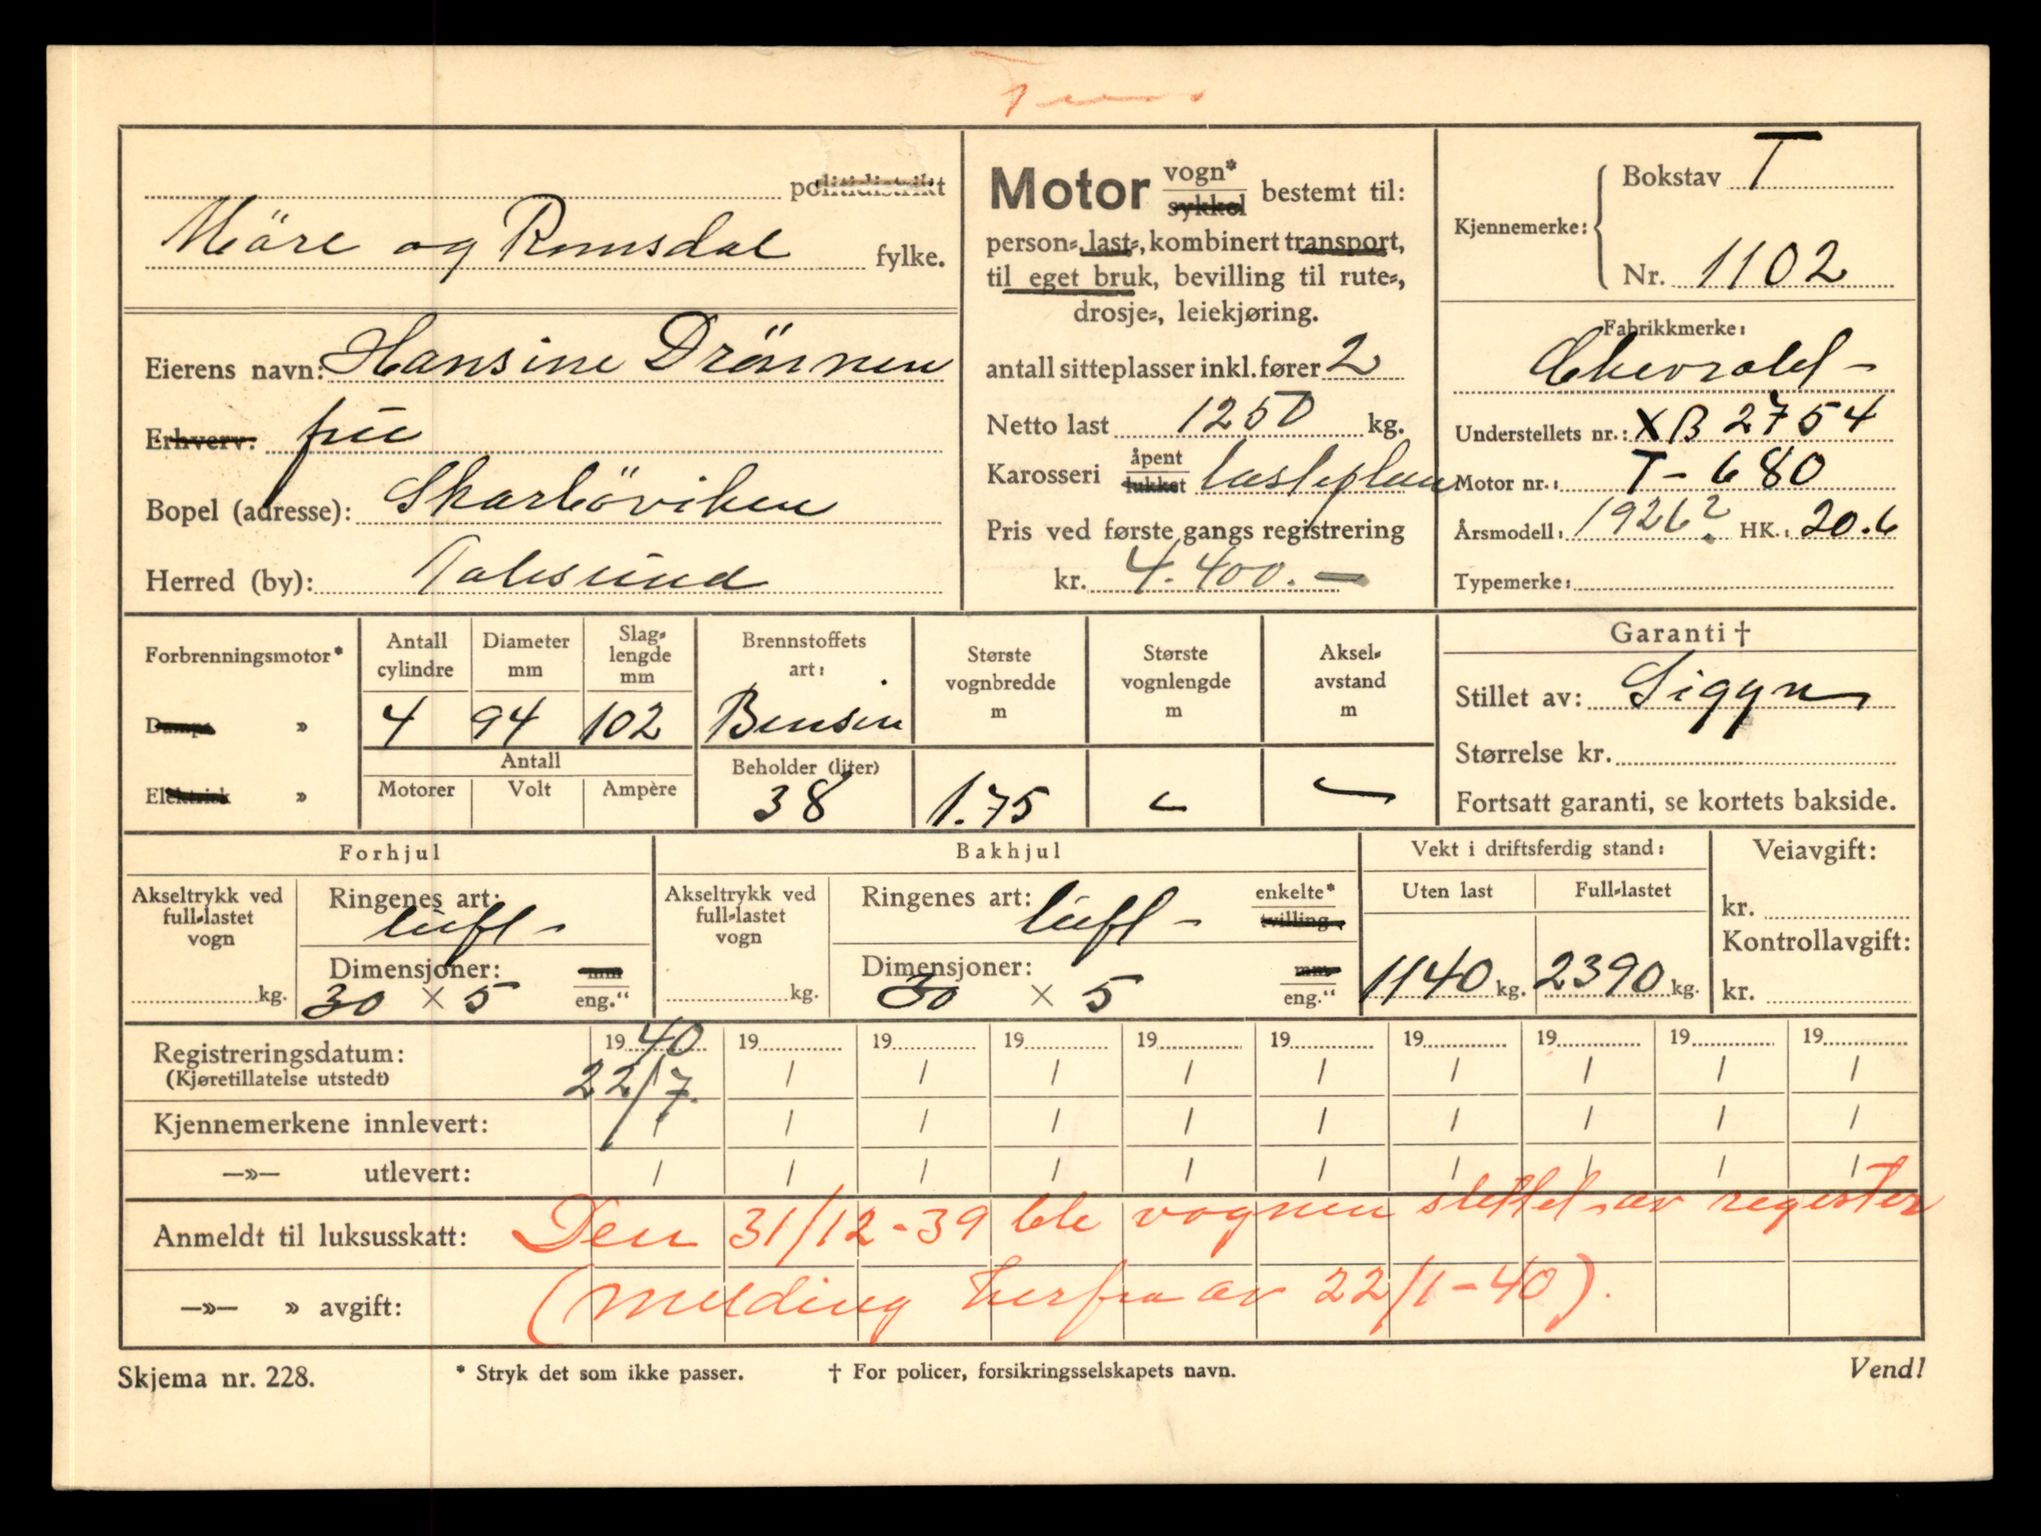 politidistrikt
Möre og Romsdal fylke.
Eierens navn: Hansine Drönnen
Erhverv: frue
Bopel (adresse): Skarböviken
Herred (by):
Motor vogn* sykkel bestemt til:
person-, last-, kombinert transport,
til eget bruk, bevilling til rute-,
drosje-, leiekjøring.
antall sitteplasser inkl. fører 2
Netto last 1250 kg.
Karosseri åpent lukket lasteplan
Pris ved første gangs registrering
kr. 4.400.—
Kjennemerke: Bokstav T
Nr. 1102
Fabrikkmerke:
Chevrolet
Understellets nr.: XB 2754
Motor nr.: T-680
Årsmodell: 1926? HK.: 20.6
Typemerke:
Forbrenningsmotor*
Damp- »
Elektrisk »
Antall cylindre Diameter mm Slaglengde mm
4 94 102
Antall
Motorer Volt Ampère
Brennstoffets art:
Bensin
Beholder (liter)
38
Største vognbredde m
1.75
Største vognlengde m
-
Aksel-avstand m
-
Garanti †
Stillet av: Sigyn
Størrelse kr.
Fortsatt garanti, se kortets bakside.
Forhjul
Akseltrykk ved full-lastet vogn
kg.
Ringenes art: luft
Dimensjoner: mm
30 × 5 eng."
Bakhjul
Akseltrykk ved full-lastet vogn
kg.
Ringenes art: luft enkelte* tvilling
Dimensjoner: mm
30 × 5 eng."
Vekt i driftsferdig stand:
Uten last Full-lastet
1140 kg. 2390 kg.
Veiavgift:
kr.
Kontrollavgift:
kr.
Registreringsdatum: 1940 19 19 19 19 19 19 19 19 19
(Kjøretillatelse utstedt) 22/7 / / / / / / / / /
Kjennemerkene innlevert: / / / / / / / / / /
—»— utlevert: / / / / / / / / / /
Anmeldt til luksusskatt: Den 31/12-39 ble vognen slettet av register
—»— » avgift: (melding herfra av 22/1-40).
Skjema nr. 228. * Stryk det som ikke passer. † For policer, forsikringsselskapets navn. Vend!